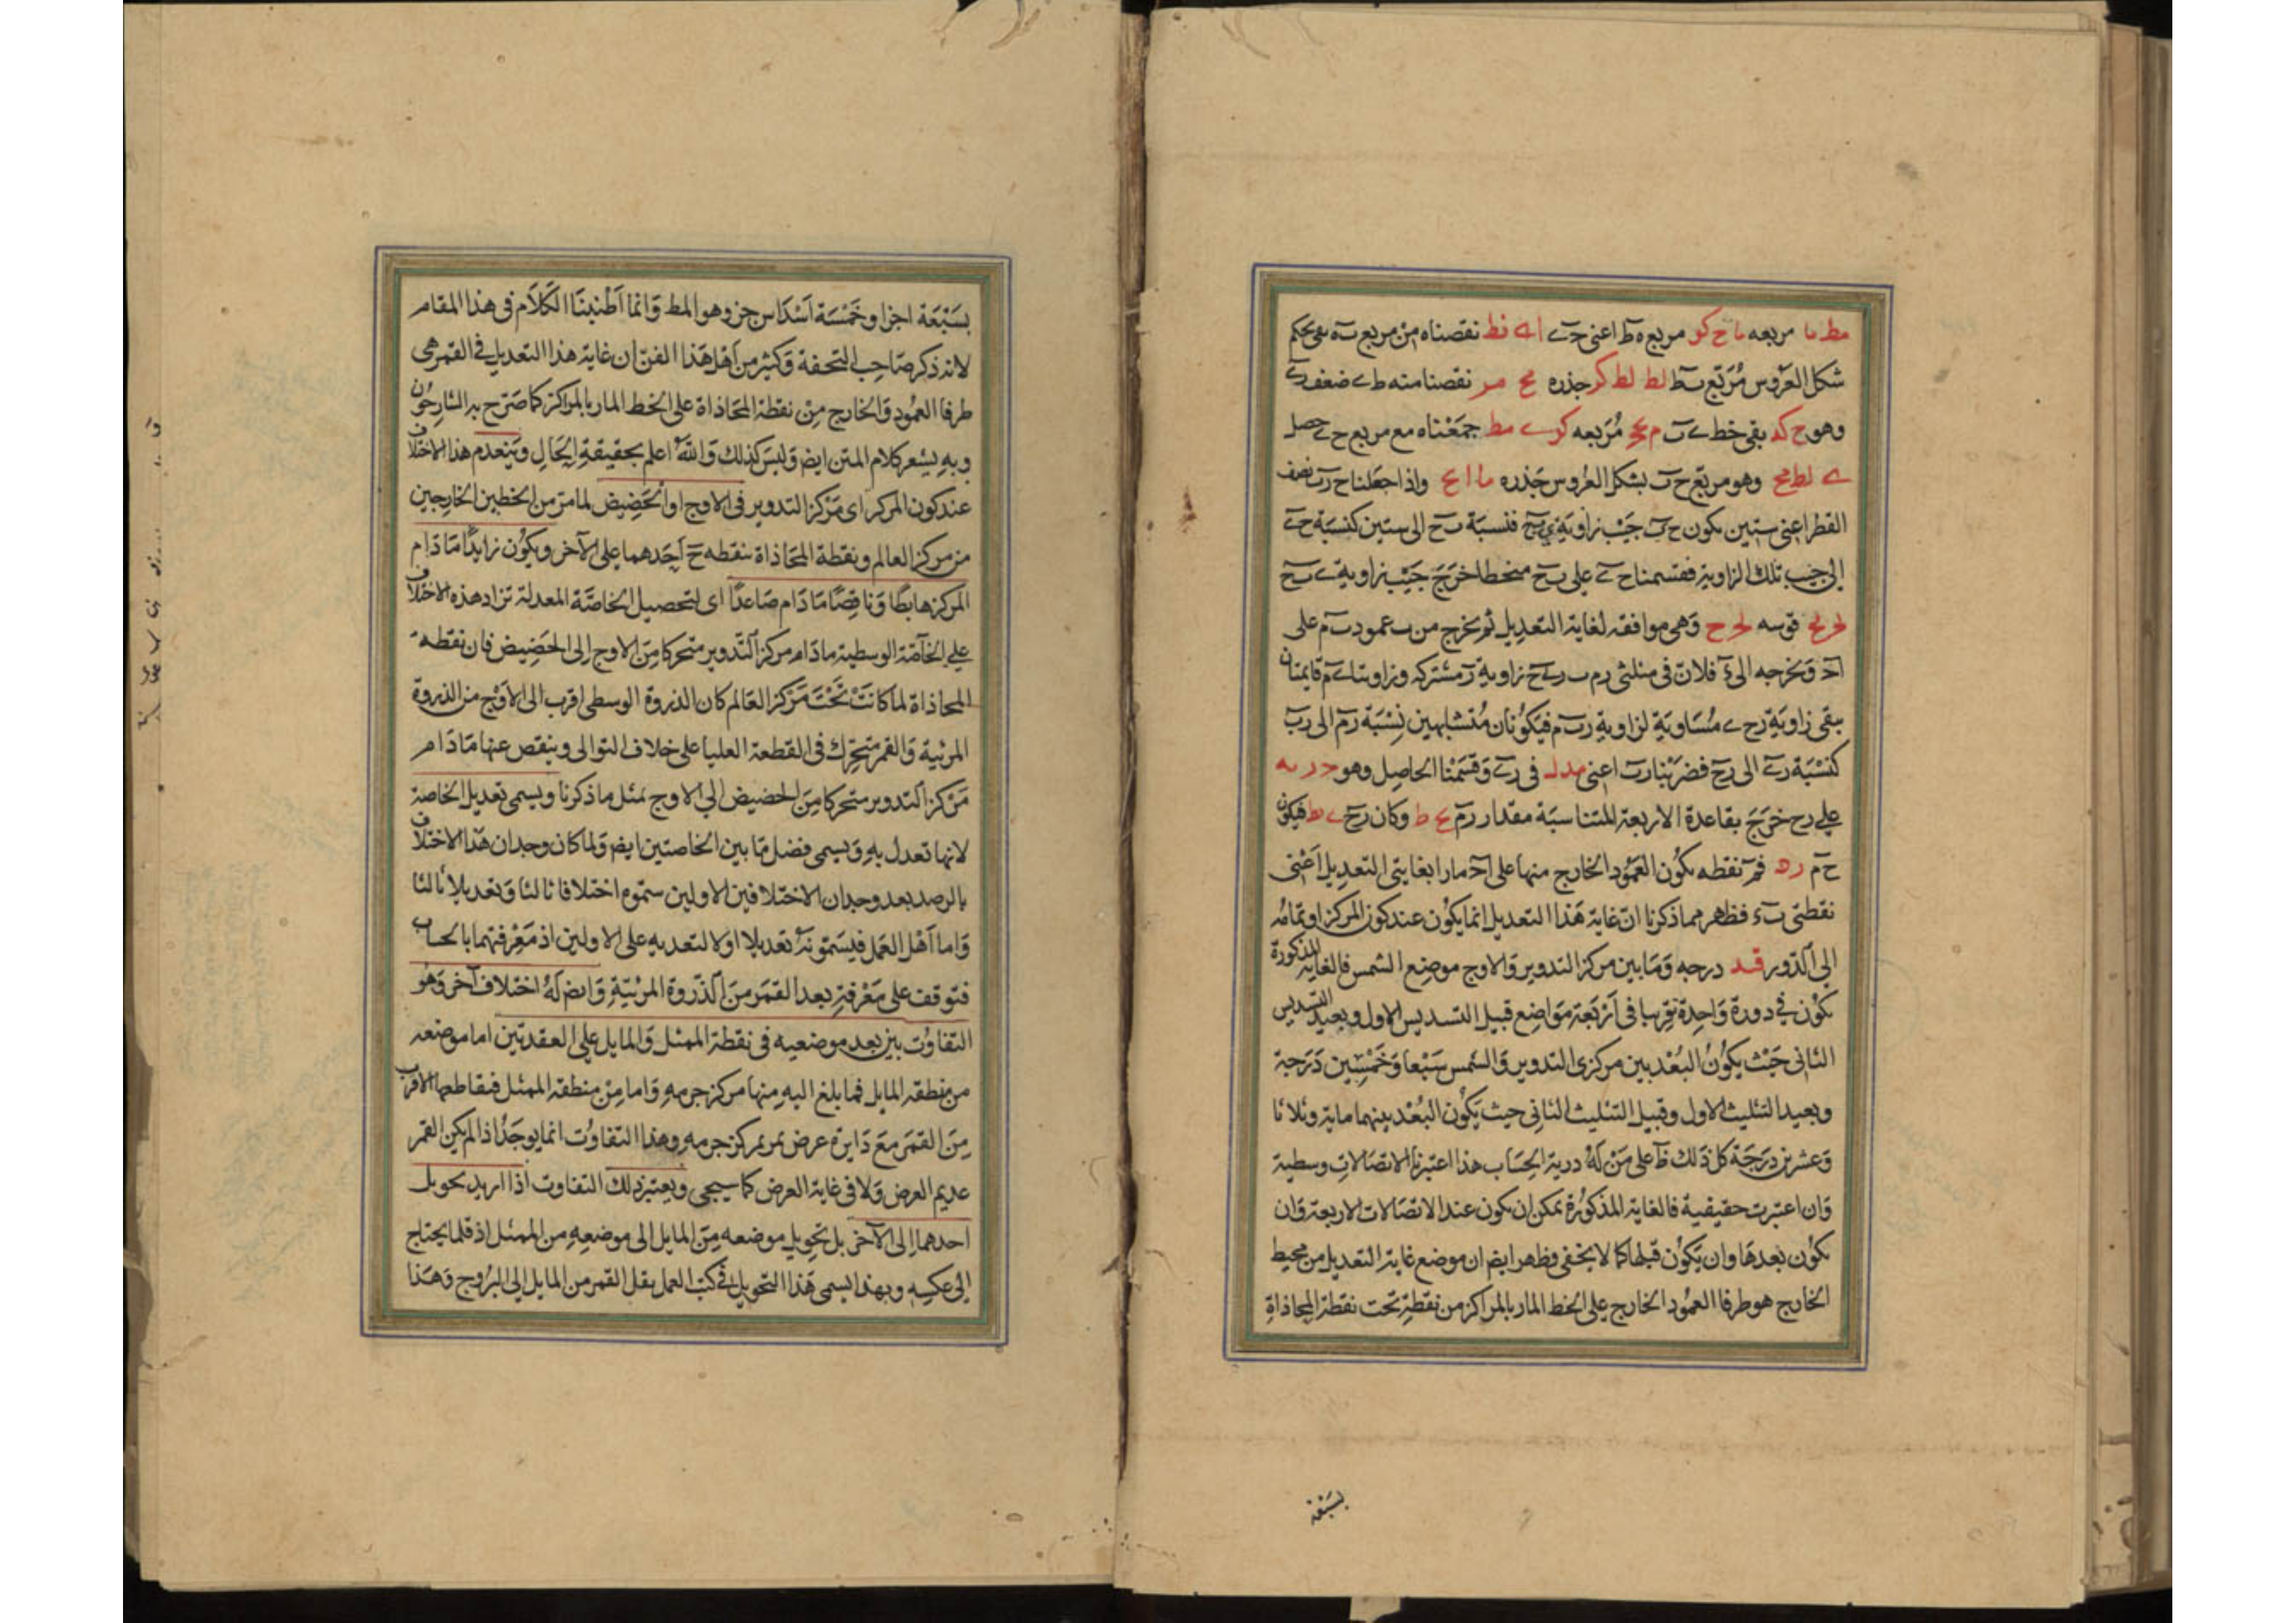 مط ما مربعه ما ح كو مربع ه ط اعنى ح ى ا ى نط نقصناه من مربع ب ه بقى بحكم
شكل العروس مربع ب ط لط لط كر جذره مح مر نقصنا منه ط ى ضعف ر ى
وهو ح كد بقى خط ى ب م مح مربعه كر ى مط جمعناه مع مربع ح ى حصل
ى لط مح وهو مربع ح ب بشكل العروس جذره ما ا مح واذا جعلنا ح ب نصف
القطر اعنى ستين يكون ح ى جيب زاوية ى ب ح فنسبة ب ح الى ستين كنسبة ح ى
الى جيب تلك الزاوية فقسمنا ح ى على ب ح منحطا خرج جيب زاوية ى ب ح
قوسه وهى موافقه لغاية التعديل ثم نخرج من ب عمود ب م على
ا ح ونخرجه الى ء فلان فى مثلثى ر م ب ر ى ح زاوية ر مشتركه وزاويتا ى م قايمتان
يبقى زاوية ر ح ى مساوية لزاوية ر ب م فيكونان متشابهين نسبة ر م الى ر ب
كنسبة ر ى الى ر ح فضربنا ر ب اعنى مد لـ فى ر ى وقسمنا الحاصل وهو
على ر ح خرج بقاعدة الاربعة المتناسبة مقدار ر م مح ط وكان ر ح ى ط فيكون
ح م ر ه فم نقطه يكون العمود الخارج منها على ا ح مارا بغايتى التعديل اعنى
نقطتى ب ء فظهر مما ذكرنا ان غاية هذا التعديل انما يكون عند كون المركز او تمامه
الى الدور قيد درجه وما بين مركز التدوير والاوج موضع الشمس فالغاية المذكورة
تكون فى دورة واحدة تقريبا فى اربعة مواضع قبيل التسديس الاول وبعيد التسديس
الثانى حيث يكون البعد بين مركزى التدوير والشمس سبعا وخمسين درجة
وبعيد التثليث الاول وقبيل التثليث الثانى حيث يكون البعد بينهما ماية وثلاثا
وعشرين درجة كل ذلك ظ على من له درية الحساب هذا اعتبرنا الاتصالات وسطية
وان اعتبرت حقيقية فالغاية المذكورة يمكن ان يكون عند الاتصالات الاربعة وان
يكون بعدها وان يكون قبلها كما لا يخفى وظهر ايض ان موضع غاية التعديل من محيط
الخارج هو طرفا العمود الخارج على الخط المار بالمراكز من نقطة تحت نقطة المحاذاة
بسبعة
بسبعة اجزا وخمسة اسداس جزو هو المط وانما اطنبنا الكلام فى هذا المقام
لانه ذكر صاحب التحفة وكثير من اهل هذا الفن ان غاية هذا التعديل فى القمر هى
طرفا العمود والخارج من نقطة المحاذاة على الخط المار بالمراكز كما صرح به الشارحون
وبه يشعر كلام المتن ايض وليس كذلك والله اعلم بحقيقة الحال وينعدم هذا الاختلاف
عند كون المركز اى مركز التدوير فى الاوج او الحضيض لما مر من الخطين الخارجين
من مركز العالم ونقطة المحاذاة ينقطه ح احدهما على الآخر ويكون زايدا ما دام
المركز هابطا وناقصا ما دام صاعدا اى لتحصيل الخاصة المعدلة تزاد هذه الاختلاف
على الخاصة الوسطية ما دام مركز التدوير متحركا من الاوج الى الحضيض فان نقطة
المحاذاة لما كانت تحت مركز العالم كان الذروة الوسطى اقرب الى الاوج من الذروة
المرئية والقمر متحرك فى القطعة العليا على خلاف التوالى وينقص عنها ما دام
مركز التدوير متحركا من الحضيض الى الاوج بمثل ما ذكرنا ويسمى تعديل الخاصة
لانها تعدل به ويسمى فضل ما بين الخاصتين ايض ولما كان وجدان هذا الاختلاف
بالرصد بعد وجدان الاختلافين الاولين سموه اختلافا ثالثا وتعديلا ثالثا
واما اهل العمل فيسمونه تعديلا اولا لتعديه على الاولين اذ معرفتهما بالحساب
فتوقف على معرفة بعد القمر من الذروة المرئية وايض له اختلاف آخر وهو
التفاوت بين بعد موضعيه فى نقطة الممثل والمايل على العقدتين اما موضعه
من منطقة المايل فما بلغ اليه منها مركز جرمه واما من منطقة الممثل فتقاطعها الاقرب
من القمر مع دايرة عرض تمر بمركز جرمه وهذا التفاوت انما يوجد اذا لم يكن القمر
عديم العرض ولا فى غاية العرض كما سيجى ويعتبر ذلك التفاوت اذا اريد تحويل
احدهما الى الآخر بل تحويل موضعه من المايل الى موضعه من الممثل اذ قلما يحتاج
الى عكسه وبهذا يسمى هذا التحويل فى كتب العمل بنقل القمر من المايل الى البروج وهذا